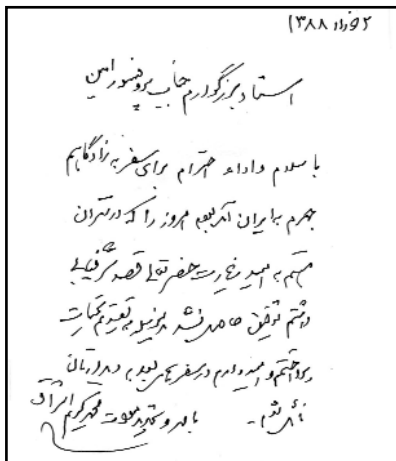 ۲ خرداد ۱۳۸۸
استاد بزرگوارم جناب پروفسور امین
با سلام و ادای احترام برای سفر به زادگاهم
جهرم به ایران آمده‌ام امروز را که در تهران
هستم به امید زیارت حضرتعالی قصد شرفیابی
داشتم توفیق حاصل نشد بدینوسیله به تقدیم تحیات
پرداختم و امیدوارم در سفرهای بعد به دیدارتان
نائل شوم.
با مهر و تجدید محمد کریم